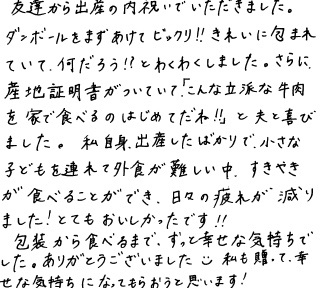 友達から出産の内祝いでいただきました。
ダンボールをまずあけてビックリ!!きれいに包まれ
ていて、何だろう!?とわくわくしました。さらに、
産地証明書がついていて、「こんな立派な牛肉
を家で食べるのはじめてだね!!」と夫と喜び
ました。私自身、出産したばかりで、小さな
子どもを連れて外食が難しい中、すきやき
が食べることができ、日々の疲れが減り
ました!とてもおいしかったです!!
包装から食べるまで、ずっと幸せな気持ちで
した。ありがとうございました 私も贈って、幸
せな気持ちになってもらおうと思います!